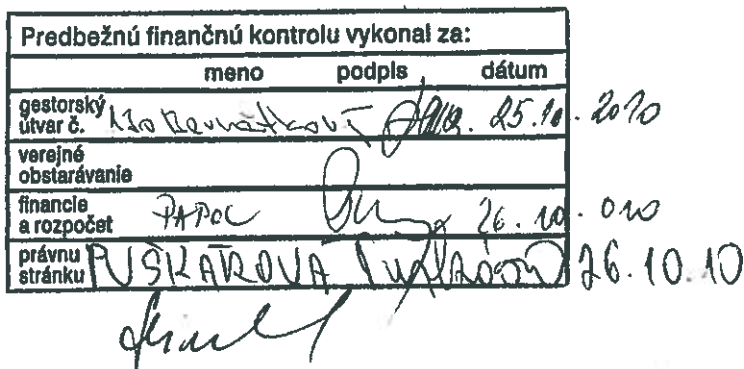 Predbežnú finančnú kontrolu vykonal za:
meno podpis dátum
gestorský útvar č. 25.10.2010
verejné obstarávanie
financie a rozpočet PAPOL 26.10.010
právnu stránku PUŠKÁROVÁ 26.10.10